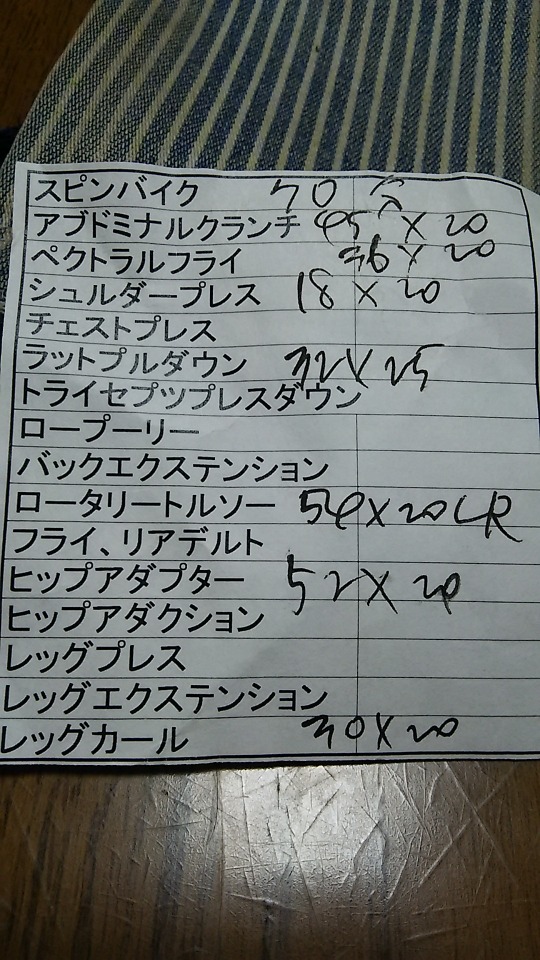 スピンバイク 分
アブドミナルクランチ 45 X 20
ペクトラルフライ 36 X 20
シュルダープレス 18 X 20
チェストプレス
ラットプルダウン 32 X 25
トライセプツプレスダウン
ロープーリー
バックエクステンション
ロータリートルソー 54 X 20 LR
フライ、リアデルト
ヒップアダプター 52 X 20
ヒップアダクション
レッグプレス
レッグエクステンション
レッグカール 30 X 20